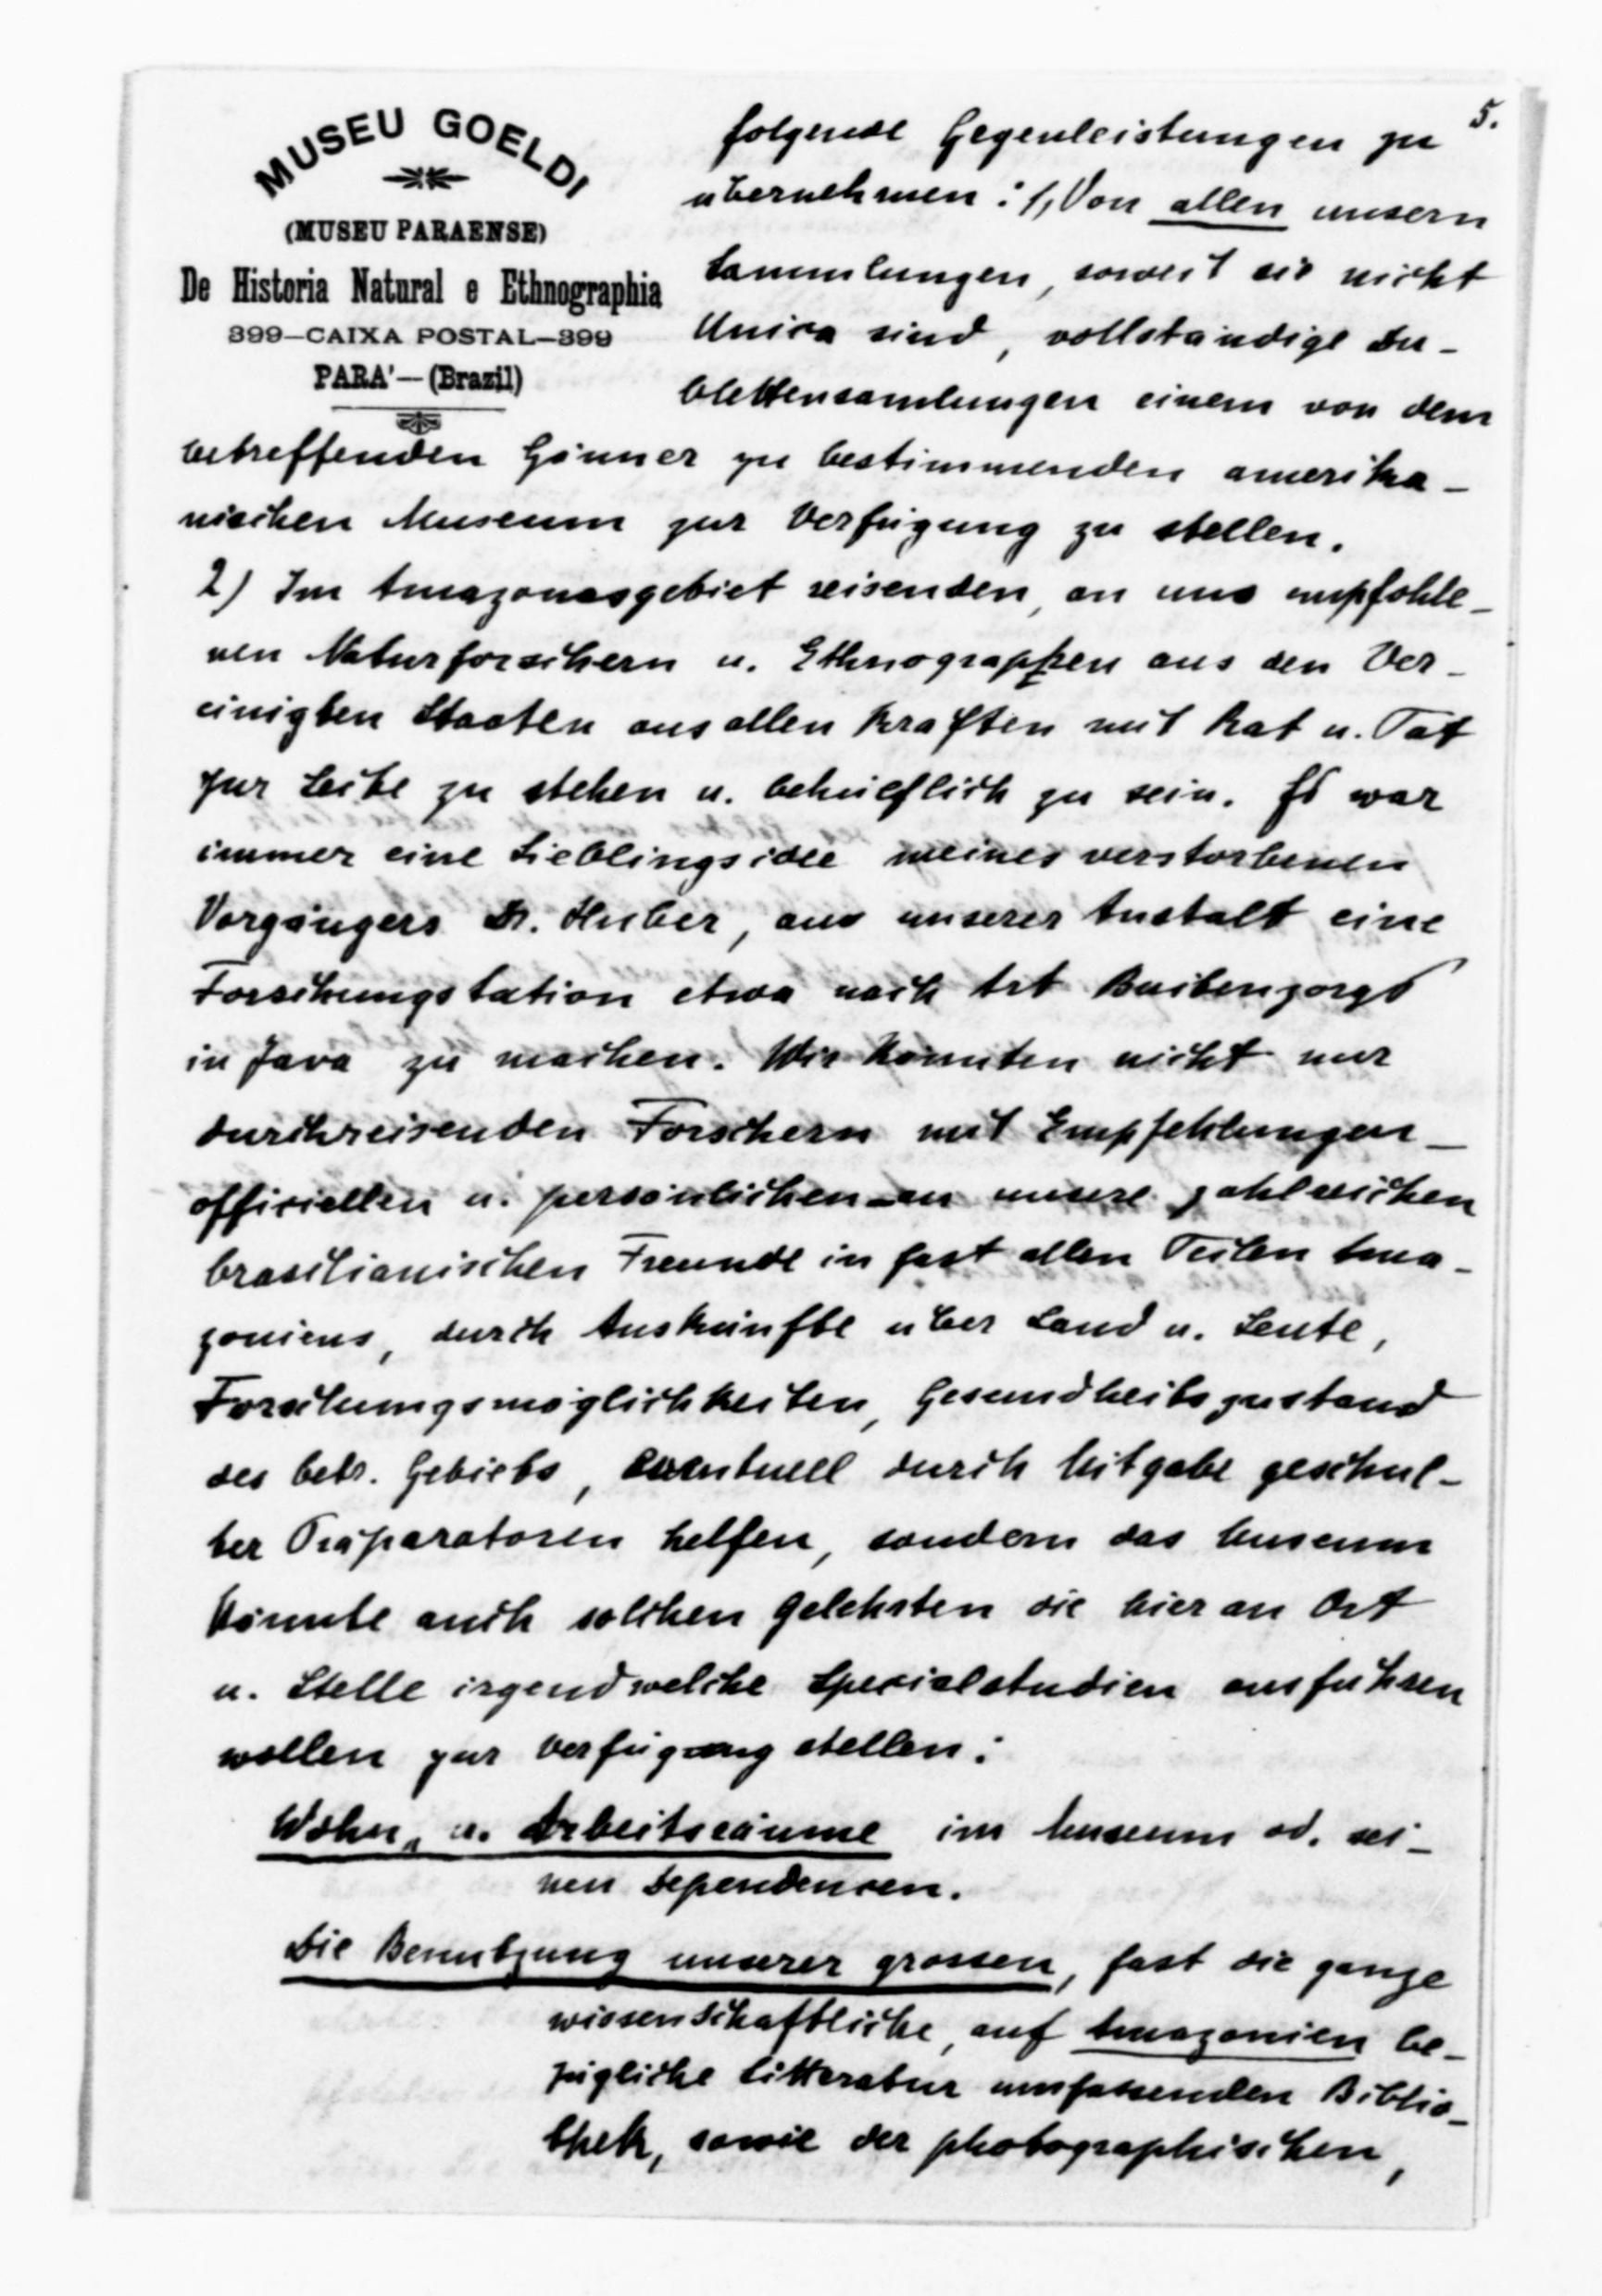 5.
MUSEU GOELDI
(MUSEU PARAENSE)
De Historia Natural e Ethnographia
399—CAIXA POSTAL—399
PARA'—(Brazil)
folgende Gegenleistungen zu
übernehmen: 1, Von allen unsern
Sammlungen, soweit sie nicht
Unica sind, vollständige Du-
blettensamlungen einem von dem
betreffenden Gönner zu bestimmenden amerika-
nischen Museum zur Verfügung zu stellen.
2) Im Amazonasgebiet reisenden, an uns empfohle-
nen Naturforschern u. Ethnographen aus den Ver-
einigten Staaten aus allen Kräften mit Rat u. Tat
zur Seite zu stehen u. behülflich zu sein. Es war
immer eine Lieblingsidee meines verstorbenen
Vorgängers Dr. Huber, aus unserer Anstalt eine
Forschungstation etwa nach Art Buitenzorgs
in Java zu machen. Wir könnten nicht nur
durchreisenden Forschern mit Empfehlungen—
officiellen u. persönlichen—an unsere zahlreichen
brasilianischen Freunde in fast allen Teilen Ama-
zoniens, durch Auskünfte über Land u. Leute,
Forschungsmöglichkeiten, Gesundheitszustand
des betr. Gebiets, eventuell durch Mitgabe geschul-
ter Präparatoren helfen, sondern das Museum
könnte auch solchen Gelehrten die hier an Ort
u. Stelle irgendwelche Specialstudien ausführen
wollen zur Verfügung stellen:
Wohn- u. Arbeitsräume im Museum od. sei-
nen Dependencen.
Die Benutzung unserer grossen, fast die ganze
wissenschaftliche, auf Amazonien be-
zügliche Litteratur umfassenden Biblio-
thek, sowie der photographischen,